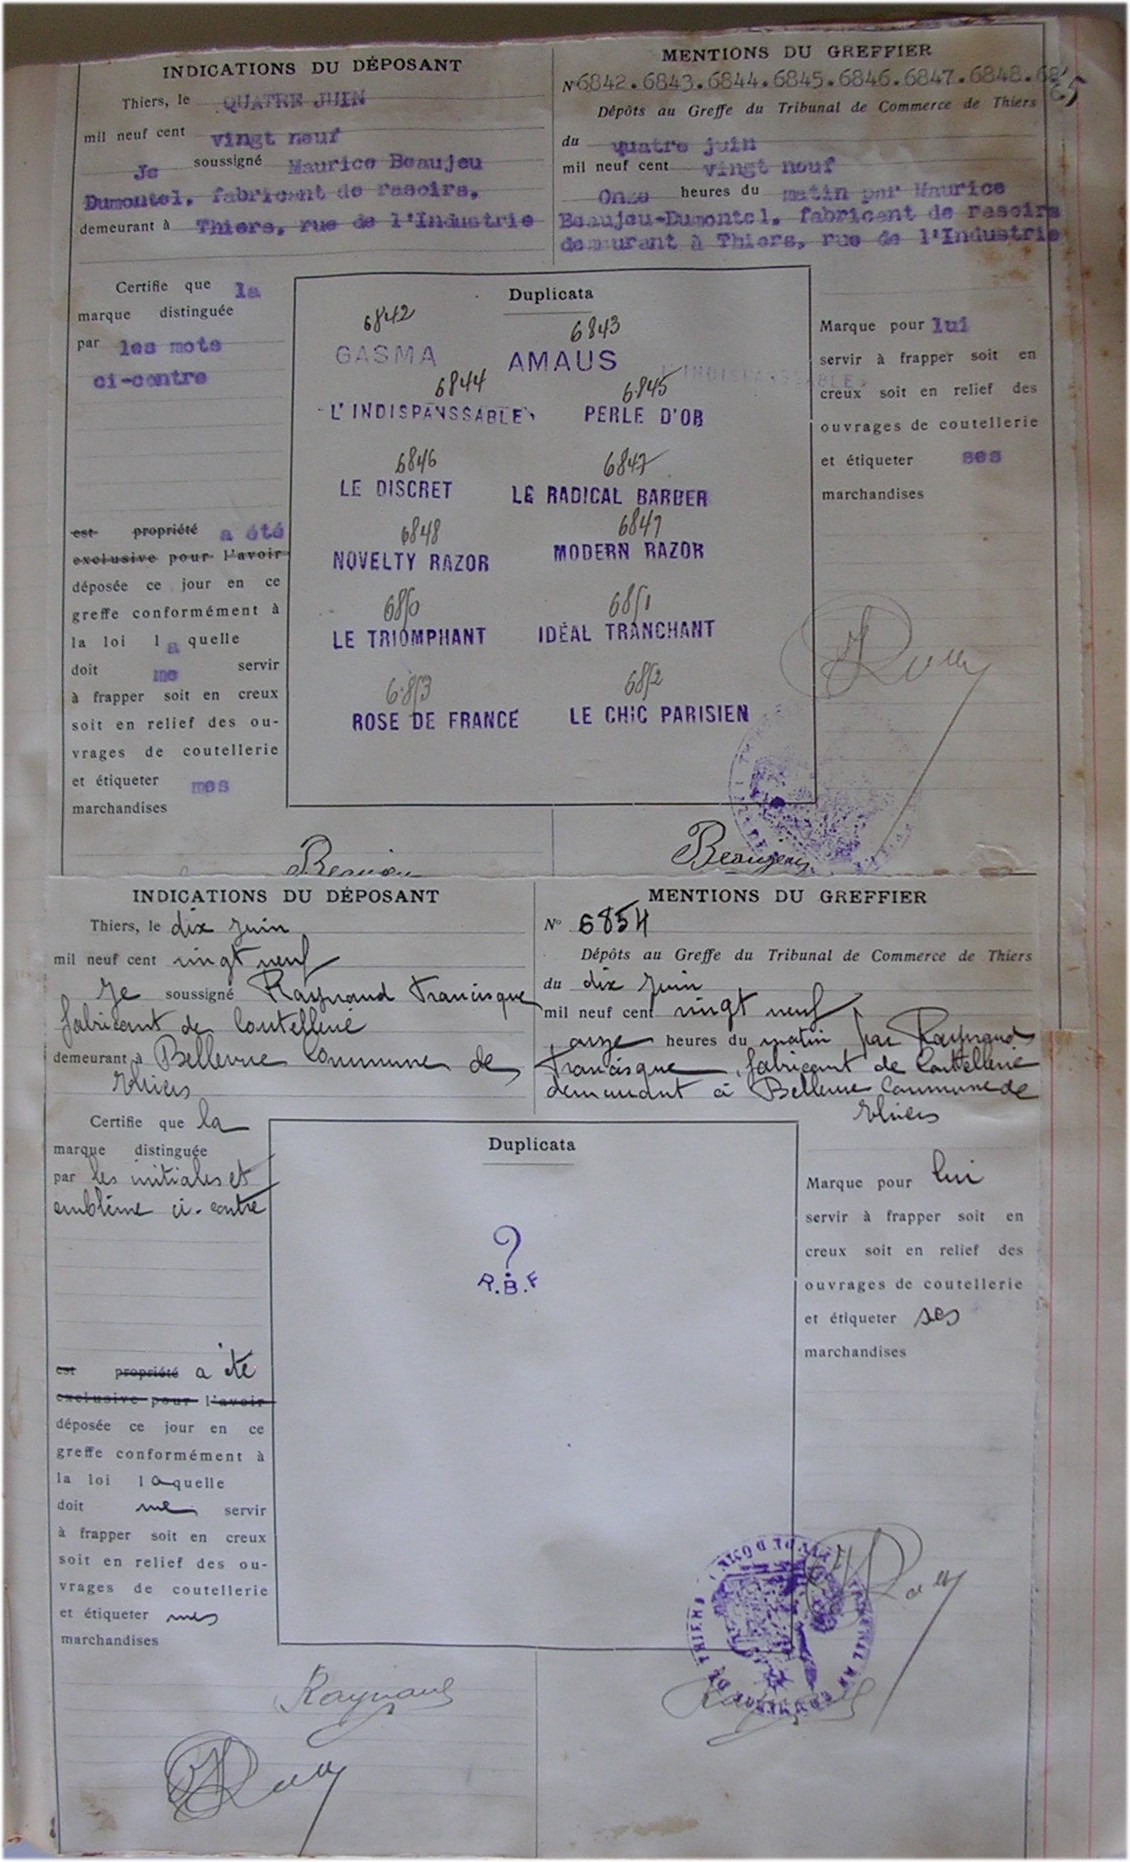 INDICATIONS DU DÉPOSANT
Thiers, le QUATRE JUIN
mil neuf cent vingt neuf
Je soussigné Maurice Beaujeu
Dumontel, fabricant de rasoirs,
demeurant à Thiers, rue de l'Industrie
MENTIONS DU GREFFIER
N° 6842.6843.6844.6845.6846.6847.6848.
Dépôts au Greffe du Tribunal de Commerce de Thiers
du quatre juin
mil neuf cent vingt neuf
Onze heures du matin par Maurice
Beaujeu-Dumontel, fabricant de rasoirs
demeurant à Thiers, rue de l'Industrie
Certifie que la
marque distinguée
par les mots
ci-contre
est propriété a été
exclusive pour l'avoir
déposée ce jour en ce
greffe conformément à
la loi laquelle
doit me servir
à frapper soit en creux
soit en relief des ou-
vrages de coutellerie
et étiqueter mes
marchandises
Duplicata
6842 6843
GASMA AMAUS
6844 6845
L'INDISPANSSABLE PERLE D'OR
L'INDISPANSSABLE
6846 6847
LE DISCRET LE RADICAL BARBER
6848 6849
NOVELTY RAZOR MODERN RAZOR
6850 6851
LE TRIOMPHANT IDÉAL TRANCHANT
6853 6852
ROSE DE FRANCE LE CHIC PARISIEN
Marque pour lui
servir à frapper soit en
creux soit en relief des
ouvrages de coutellerie
et étiqueter ses
marchandises
Beaujeu Beaujeu
INDICATIONS DU DÉPOSANT
Thiers, le dix juin
mil neuf cent vingt neuf
Je soussigné Raynaud Francisque
fabricant de Coutellerie
demeurant à Bellevue Commune de
Thiers
MENTIONS DU GREFFIER
N° 6854
Dépôts au Greffe du Tribunal de Commerce de Thiers
du dix juin
mil neuf cent vingt neuf
onze heures du matin par Raynaud
Francisque, fabricant de Coutellerie
demeurant à Bellevue Commune de
Thiers
Certifie que la
marque distinguée
par les initiales et
emblème ci-contre
est propriété a été
exclusive pour l'avoir
déposée ce jour en ce
greffe conformément à
la loi laquelle
doit me servir
à frapper soit en creux
soit en relief des ou-
vrages de coutellerie
et étiqueter mes
marchandises
Duplicata
?
R.B.F
Marque pour lui
servir à frapper soit en
creux soit en relief des
ouvrages de coutellerie
et étiqueter ses
marchandises
Raynaud Raynaud